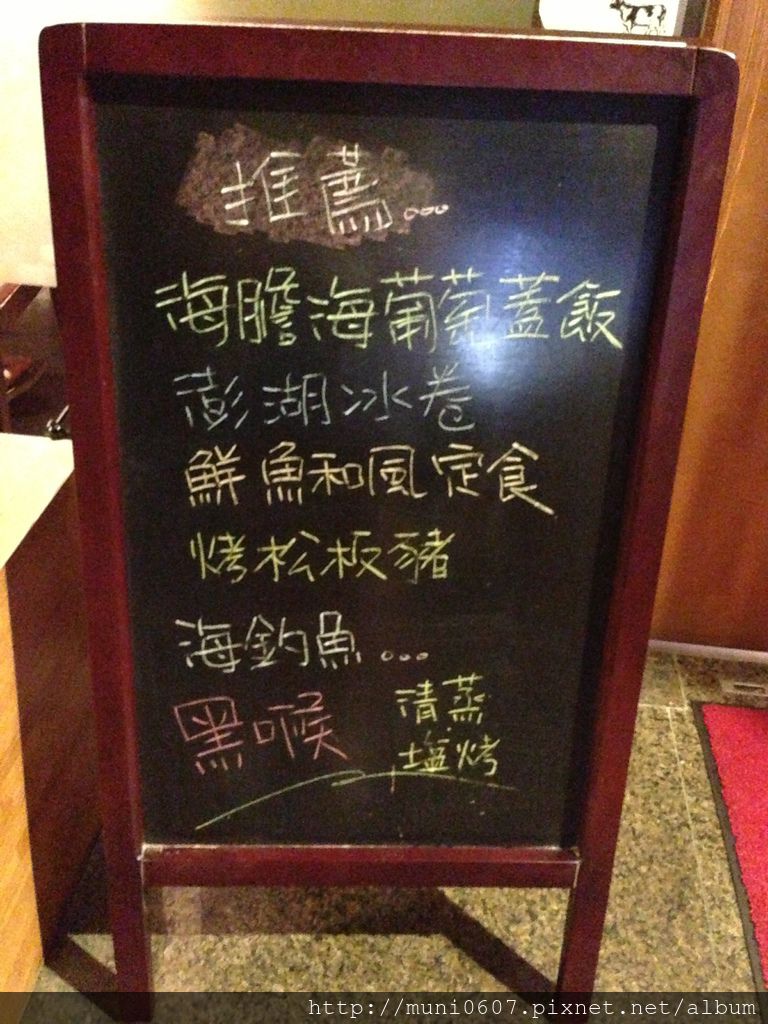 推薦...
海膽海葡萄蓋飯
澎湖冰卷
鮮魚和風定食
烤松板豬
海釣魚...
黑喉 清蒸
塩烤
http://muni0607.pixnet.net/album